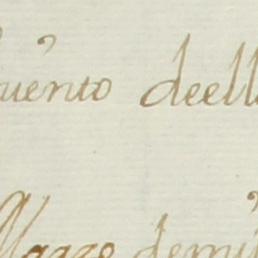 uento deell
Marzo demil